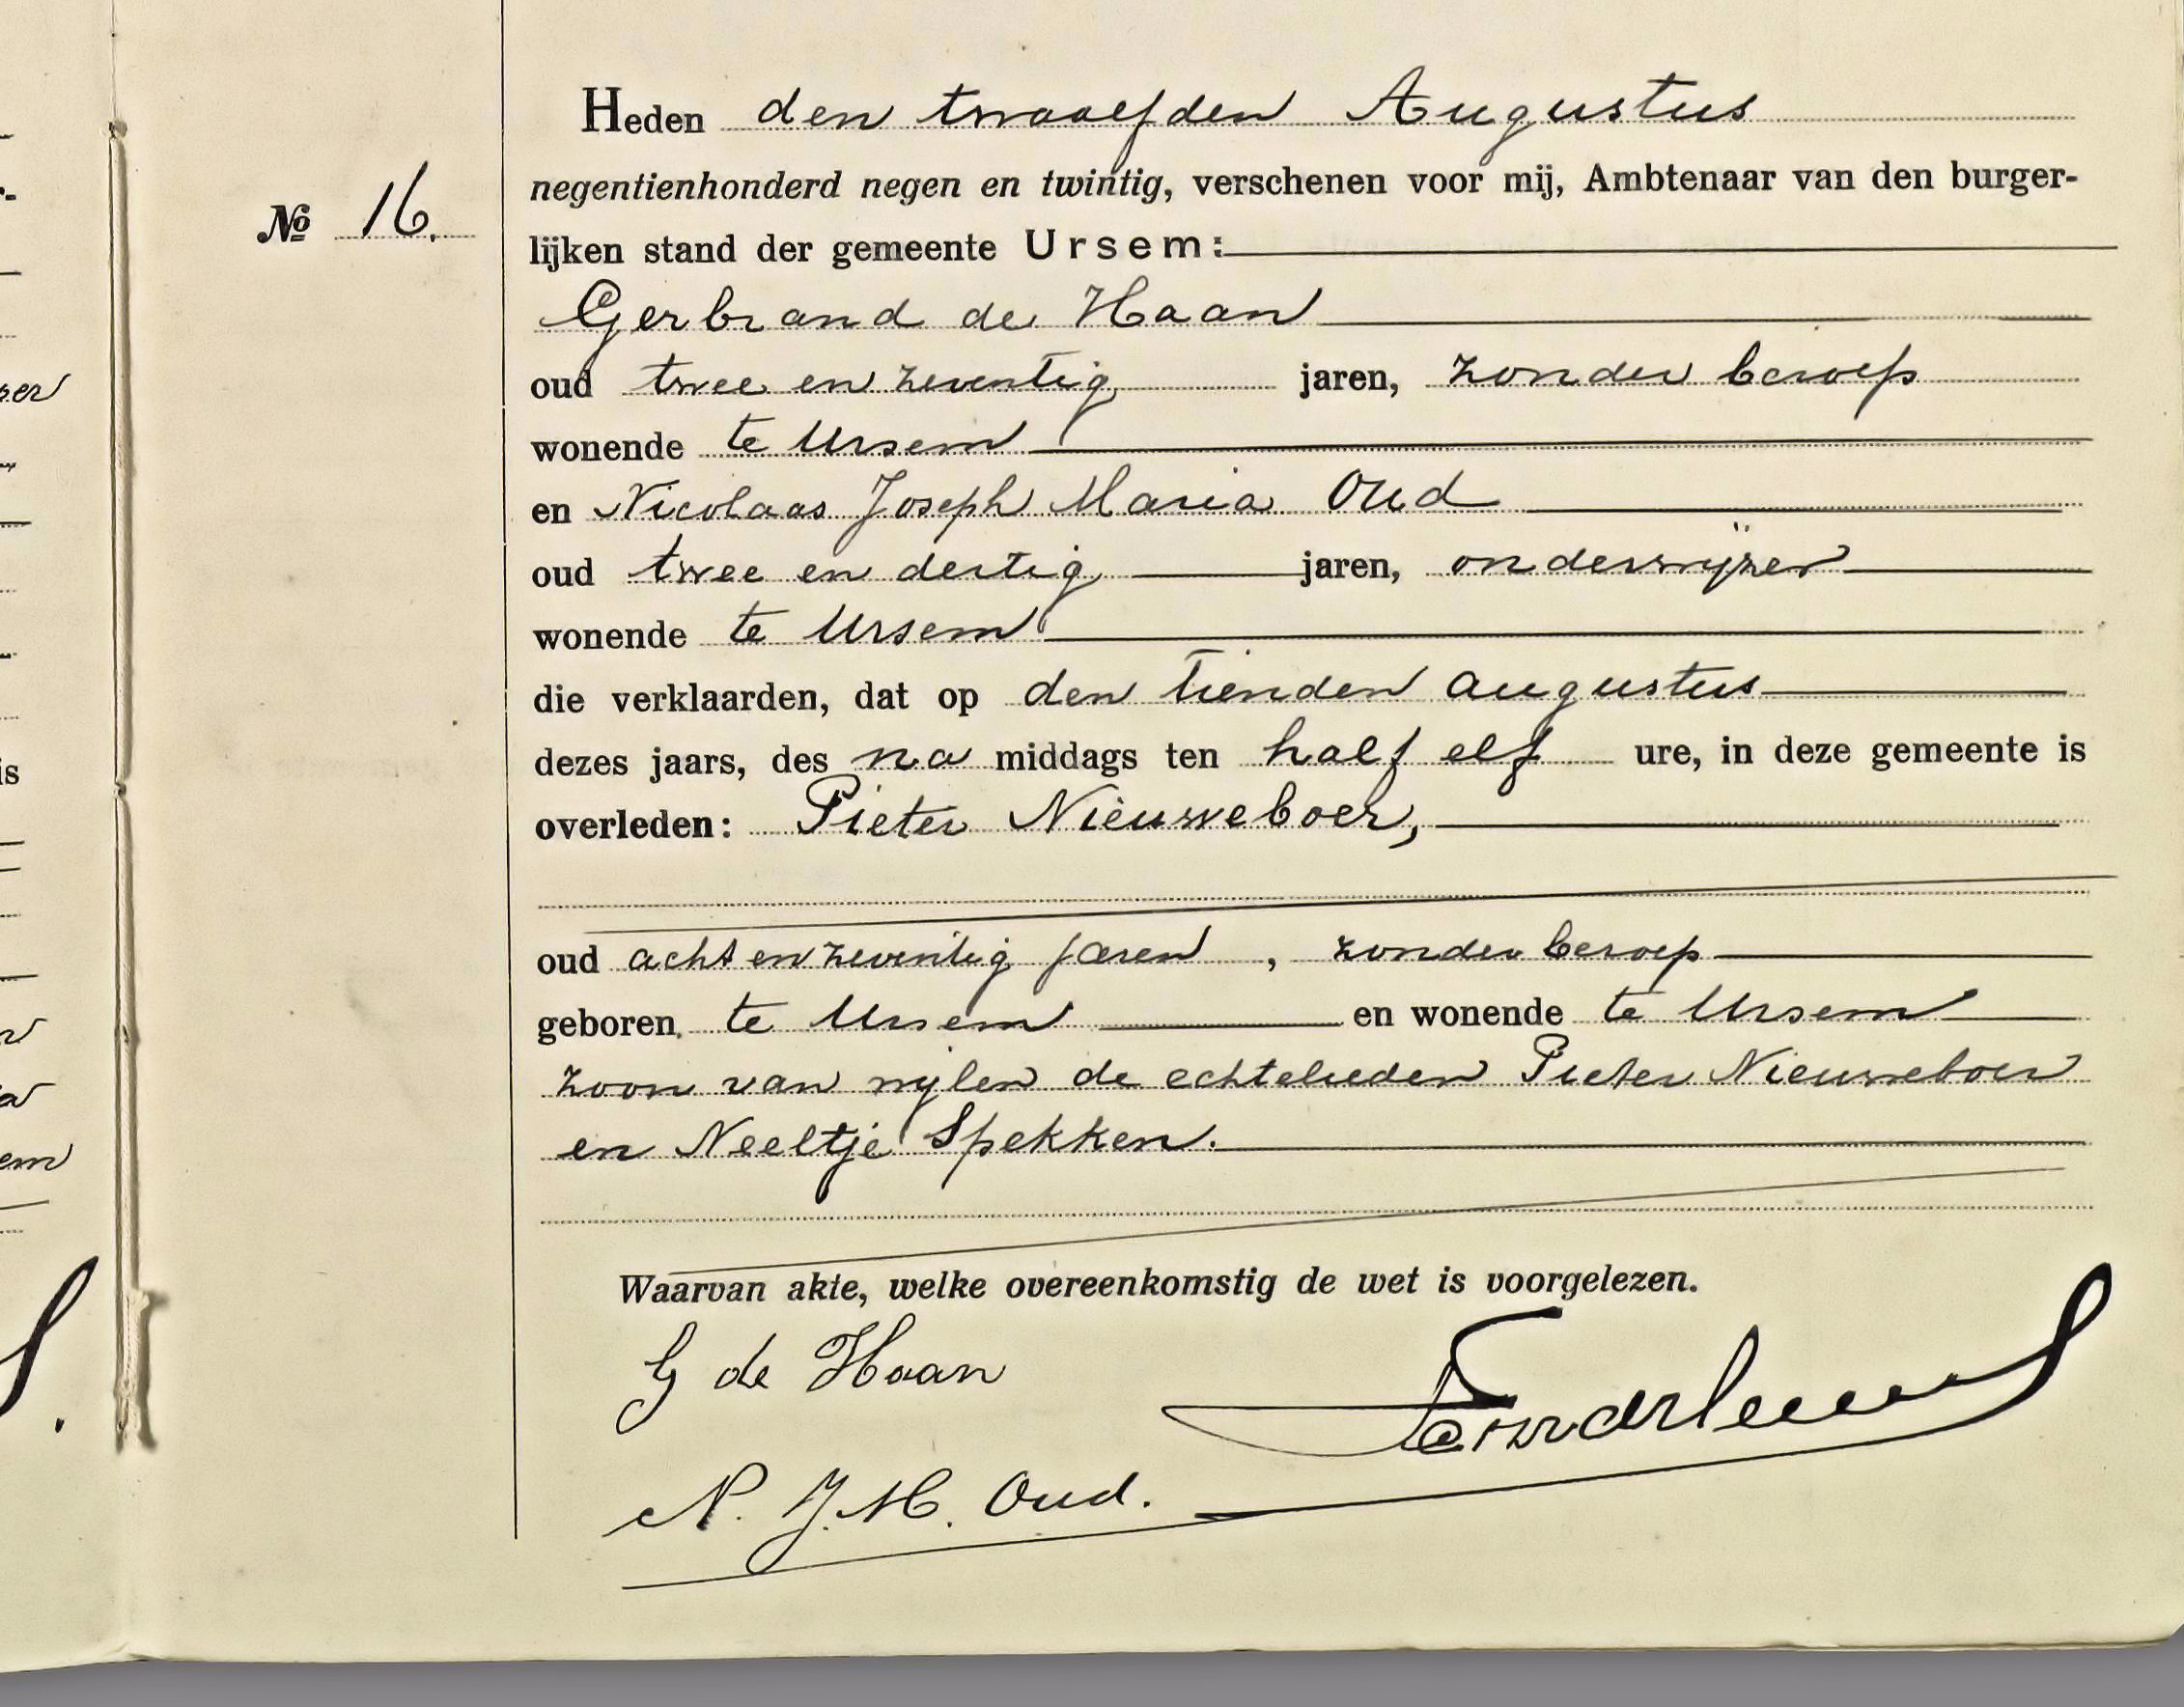 Heden den twaalfden Augustus
negentienhonderd negen en twintig, verschenen voor mij, Ambtenaar van den burger-
No 16.
lijken stand der gemeente Ursem:
Gerbrand de Haan
oud twee en zeventig jaren, zonder beroep
wonende te Ursem
en Nicolaas Joseph Maria Oud
oud twee en dertig jaren, onderwijzer
wonende te Ursem
die verklaarden, dat op den tienden augustus
dezes jaars, des na middags ten half elf ure, in deze gemeente is
overleden: Pieter Nieuweboer,
oud acht en zeventig jaren, zonder beroep
geboren te Ursem en wonende te Ursem
zoon van wylen de echtelieden Pieter Nieuweboer
en Neeltje Spekken.
Waarvan akte, welke overeenkomstig de wet is voorgelezen.
G de Haan
N. J. M. Oud.